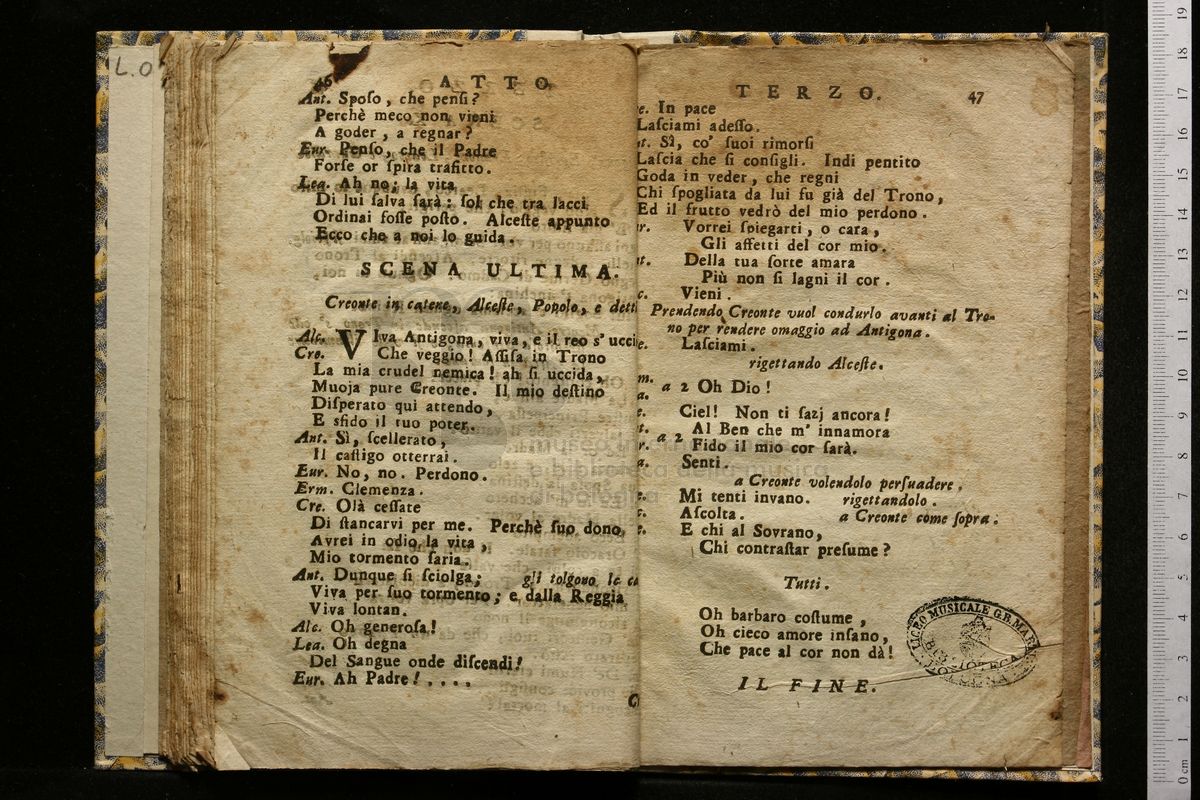 L.O
46 ATTO
Ant. Sposo, che pensi?
Perchè meco non vieni
A goder, a regnar?
Eur. Penso, che il Padre
Forse or spira trafitto.
Lea. Ah no; la vita
Di lui salva sarà: sol che tra lacci
Ordinai fosse posto. Alceste appunto
Ecco che a noi lo guida.
SCENA ULTIMA.
Creonte in catene, Alceste, Popolo, e detti
Alc. VIva Antigona, viva, e il reo s' ucci
Cre. Che veggio! Assisa in Trono
La mia crudel nemica! ah si uccida,
Muoja pure Creonte. Il mio destino
Disperato qui attendo,
E sfido il tuo poter.
Ant. Sì, scellerato,
Il castigo otterrai.
Eur. No, no. Perdono.
Erm. Clemenza.
Cre. Olà cessate
Di stancarvi per me. Perchè suo dono,
Avrei in odio la vita,
Mio tormento saria.
Ant. Dunque si sciolga; gli tolgono le ca
Viva per suo tormento; e dalla Reggia
Viva lontan.
Alc. Oh generosa!
Lea. Oh degna
Del Sangue onde discendi!
Eur. Ah Padre!....
C
TERZO. 47
e. In pace
Lasciami adesso.
nt. Sì, co' suoi rimorsi
Lascia che si consigli. Indi pentito
Goda in veder, che regni
Chi spogliata da lui fu già del Trono,
Ed il frutto vedrò del mio perdono.
ur. Vorrei spiegarti, o cara,
Gli affetti del cor mio.
nt. Della tua sorte amara
Più non si lagni il cor.
c. Vieni.
Prendendo Creonte vuol condurlo avanti al Tro-
no per rendere omaggio ad Antigona.
e. Lasciami.
rigettando Alceste.
m.
a 2 Oh Dio!
a.
e. Ciel! Non ti sazj ancora!
t. Al Ben che m' innamora
r. a 2 Fido il mio cor sarà.
a. Senti.
a Creonte volendolo persuadere.
e. Mi tenti invano. rigettandolo.
c. Ascolta. a Creonte come sopra.
e. E chi al Sovrano,
Chi contrastar presume?
Tutti.
Oh barbaro costume,
Oh cieco amore insano,
Che pace al cor non dà!
IL FINE.
LICEO MUSICALE G.B. MAR
BIBLIOTECA
BOLOGNA
museo internazionale
e biblioteca della musica
di bologna
0 cm 1 2 3 4 5 6 7 8 9 10 11 12 13 14 15 16 17 18 19